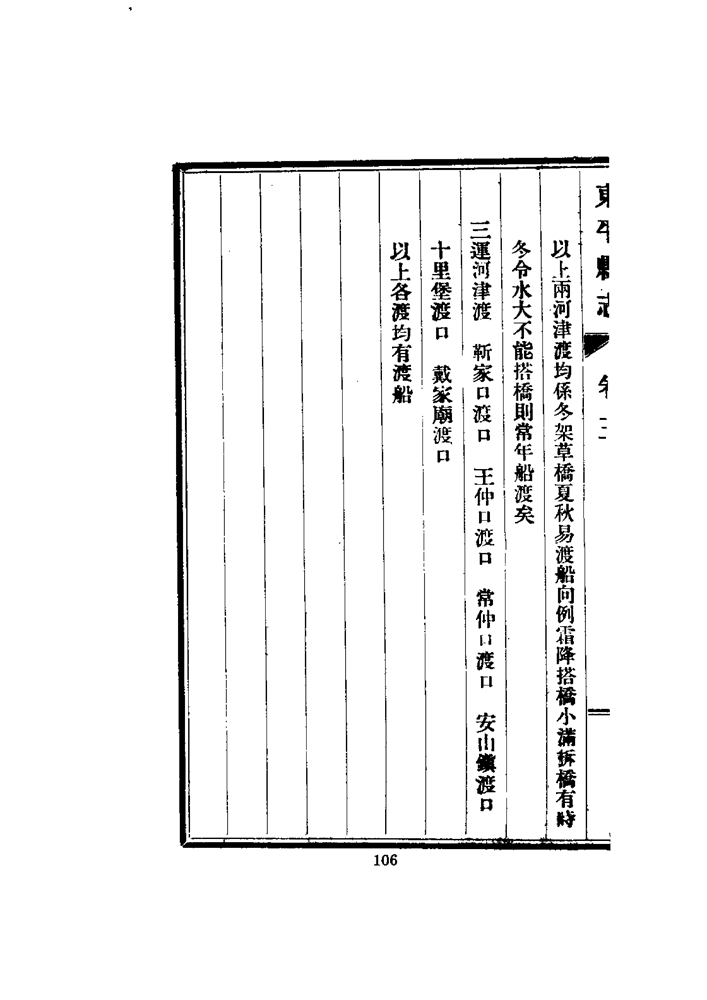 東平縣志 卷三
以上兩河津渡均係冬架草橋夏秋易渡船向例霜降搭橋小滿拆橋有時
冬令水大不能搭橋則常年船渡矣
三運河津渡 靳家口渡口 王仲口渡口 常仲口渡口 安山鎮渡口
十里堡渡口 戴家廟渡口
以上各渡均有渡船
106